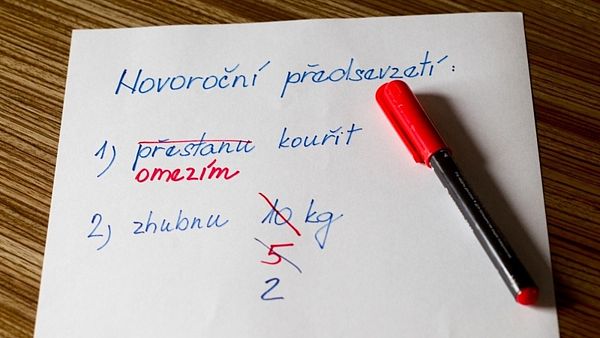 Novoroční předsevzetí:
1) přestanu kouřit
omezím
2) zhubnu 10 kg
5
2